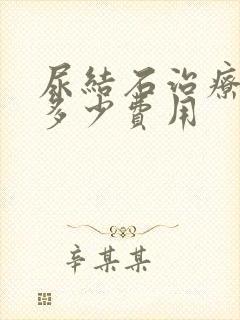 尿結石治療
多少費用
辛某某